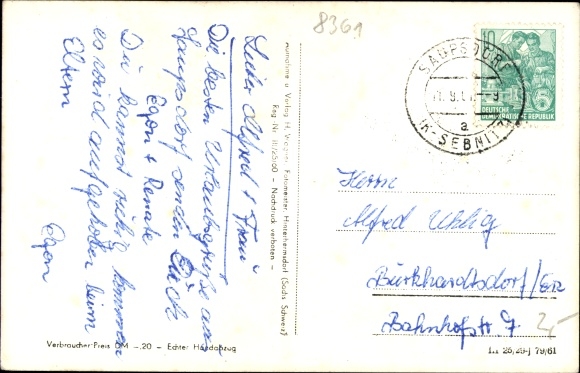 8361
Lieber Alfred + Frau
Die besten Urlaubsgrüße aus
Saupsdorf senden Euch
Egon + Renate
Du kannst ruhig kommen
es wird aufgehoben beim
Eltern
Egon
Aufnahme u. Verlag H. Fotomeister Hinterhermsdorf (Sächs. Schweiz)
Reg.-Nr. III/25/60 – Nachdruck verboten –
Verbraucher-Preis DM –,20 – Echter Handabzug
10
DEUTSCHE
DEMOKRATISCHE REPUBLIK
SAUPSDORF
a
SEBNITZ
Herrn
Alfred Uhlig
Burkhardtsdorf/Erz
Bahnhofstr. 7
2,-
79/61